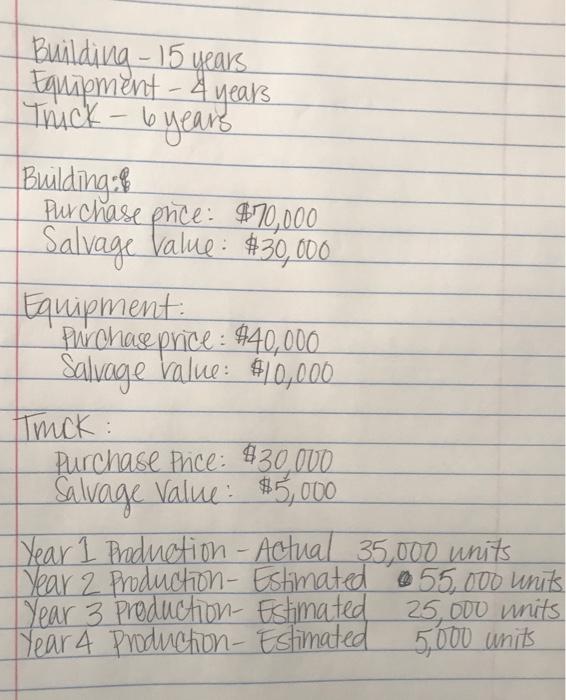 Building - 15 years
Equipment - 4 years
Truck - 6 years
Building:
Purchase price: $70,000
Salvage Value: $30,000
Equipment:
Purchase price: $40,000
Salvage Value: $10,000
Truck:
Purchase Price: $30,000
Salvage Value: $5,000
Year 1 Production - Actual 35,000 units
Year 2 Production - Estimated 55,000 units
Year 3 Production - Estimated 25,000 units
Year 4 Production - Estimated 5,000 units